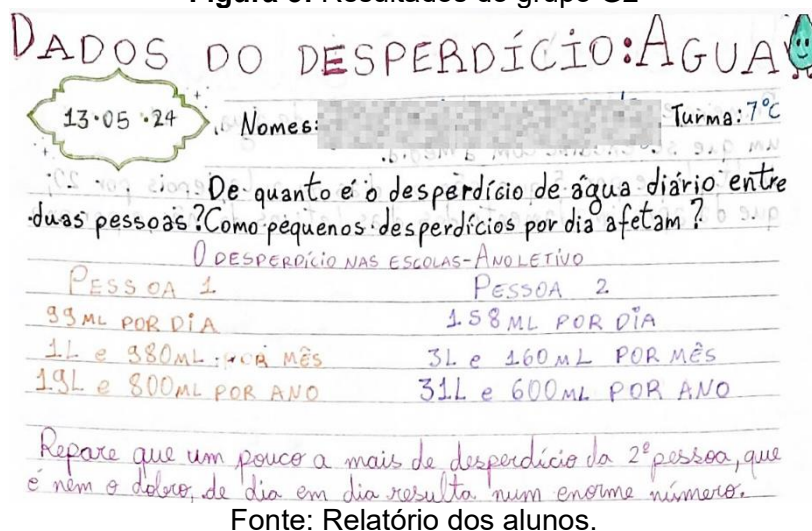 Figura 6: Resultados do grupo G2
DADOS DO DESPERDÍCIO: ÁGUA
13.05.24
Nomes:
Turma: 7°C
De quanto é o desperdício de água diário entre
duas pessoas? Como pequenos desperdícios por dia afetam?
O DESPERDÍCIO NAS ESCOLAS - ANO LETIVO
PESSOA 1
PESSOA 2
99ML POR DIA
158 ML POR DIA
1L e 980ML POR MÊS
3L e 160ML POR MÊS
19L e 800ML POR ANO
31L e 600ML POR ANO
Repare que um pouco a mais de desperdício da 2ª pessoa, que
é nem o dobro, de dia em dia resulta num enorme número.
Fonte: Relatório dos alunos.